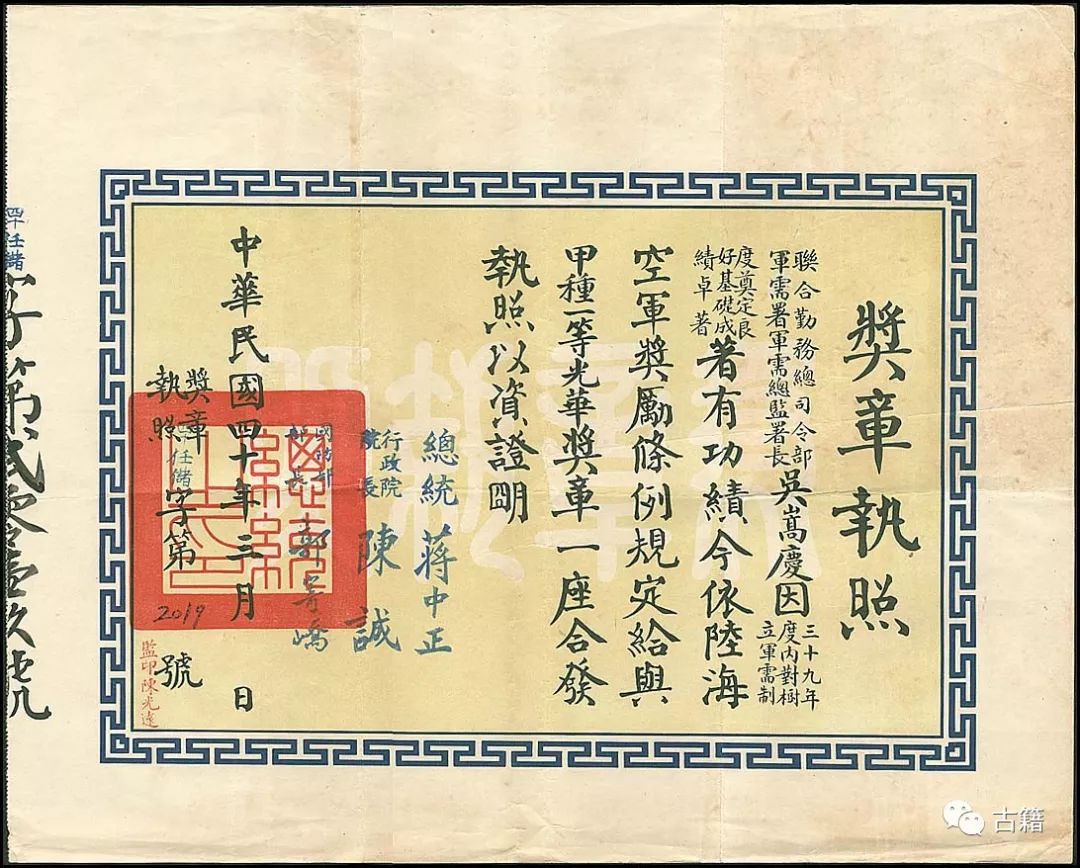 獎章執照
聯合勤務總司令部
軍需署軍需總監署長
吳嵩慶因
三十九年
度內對樹
立軍需制
度奠定良
好基礎成
績卓著
著有功績今依陸海
空軍獎勵條例規定給與
甲種一等光華獎章一座合發
執照以資證明
總統 蔣中正
行政院院長 陳誠
國防部部長 郭寄嶠
中華民國四十年三月 日
獎章執照 任儲字第2019號
監印陳光達
任儲字第貳零壹玖號
古籍